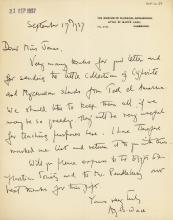 21 SEP 1937
THE MUSEUM OF CLASSICAL ARCHAEOLOGY,
LITTLE ST. MARY'S LANE,
CAMBRIDGE.
September 17th 1937
Dear Miss
Very many thanks for your letter and
for sending the little Collection of Cypriote
and Mycenaean sherds from Tell el Amarna
We should like to keep them all, if we
may be so greedy. They will be very useful
for teaching purposes here. I have therefore
marked the list and return it to you with this
Will you please express to the Egypt Ex-
ploration Society and to Mr Pendlebury our
best thanks for this gift.
Yours very truly